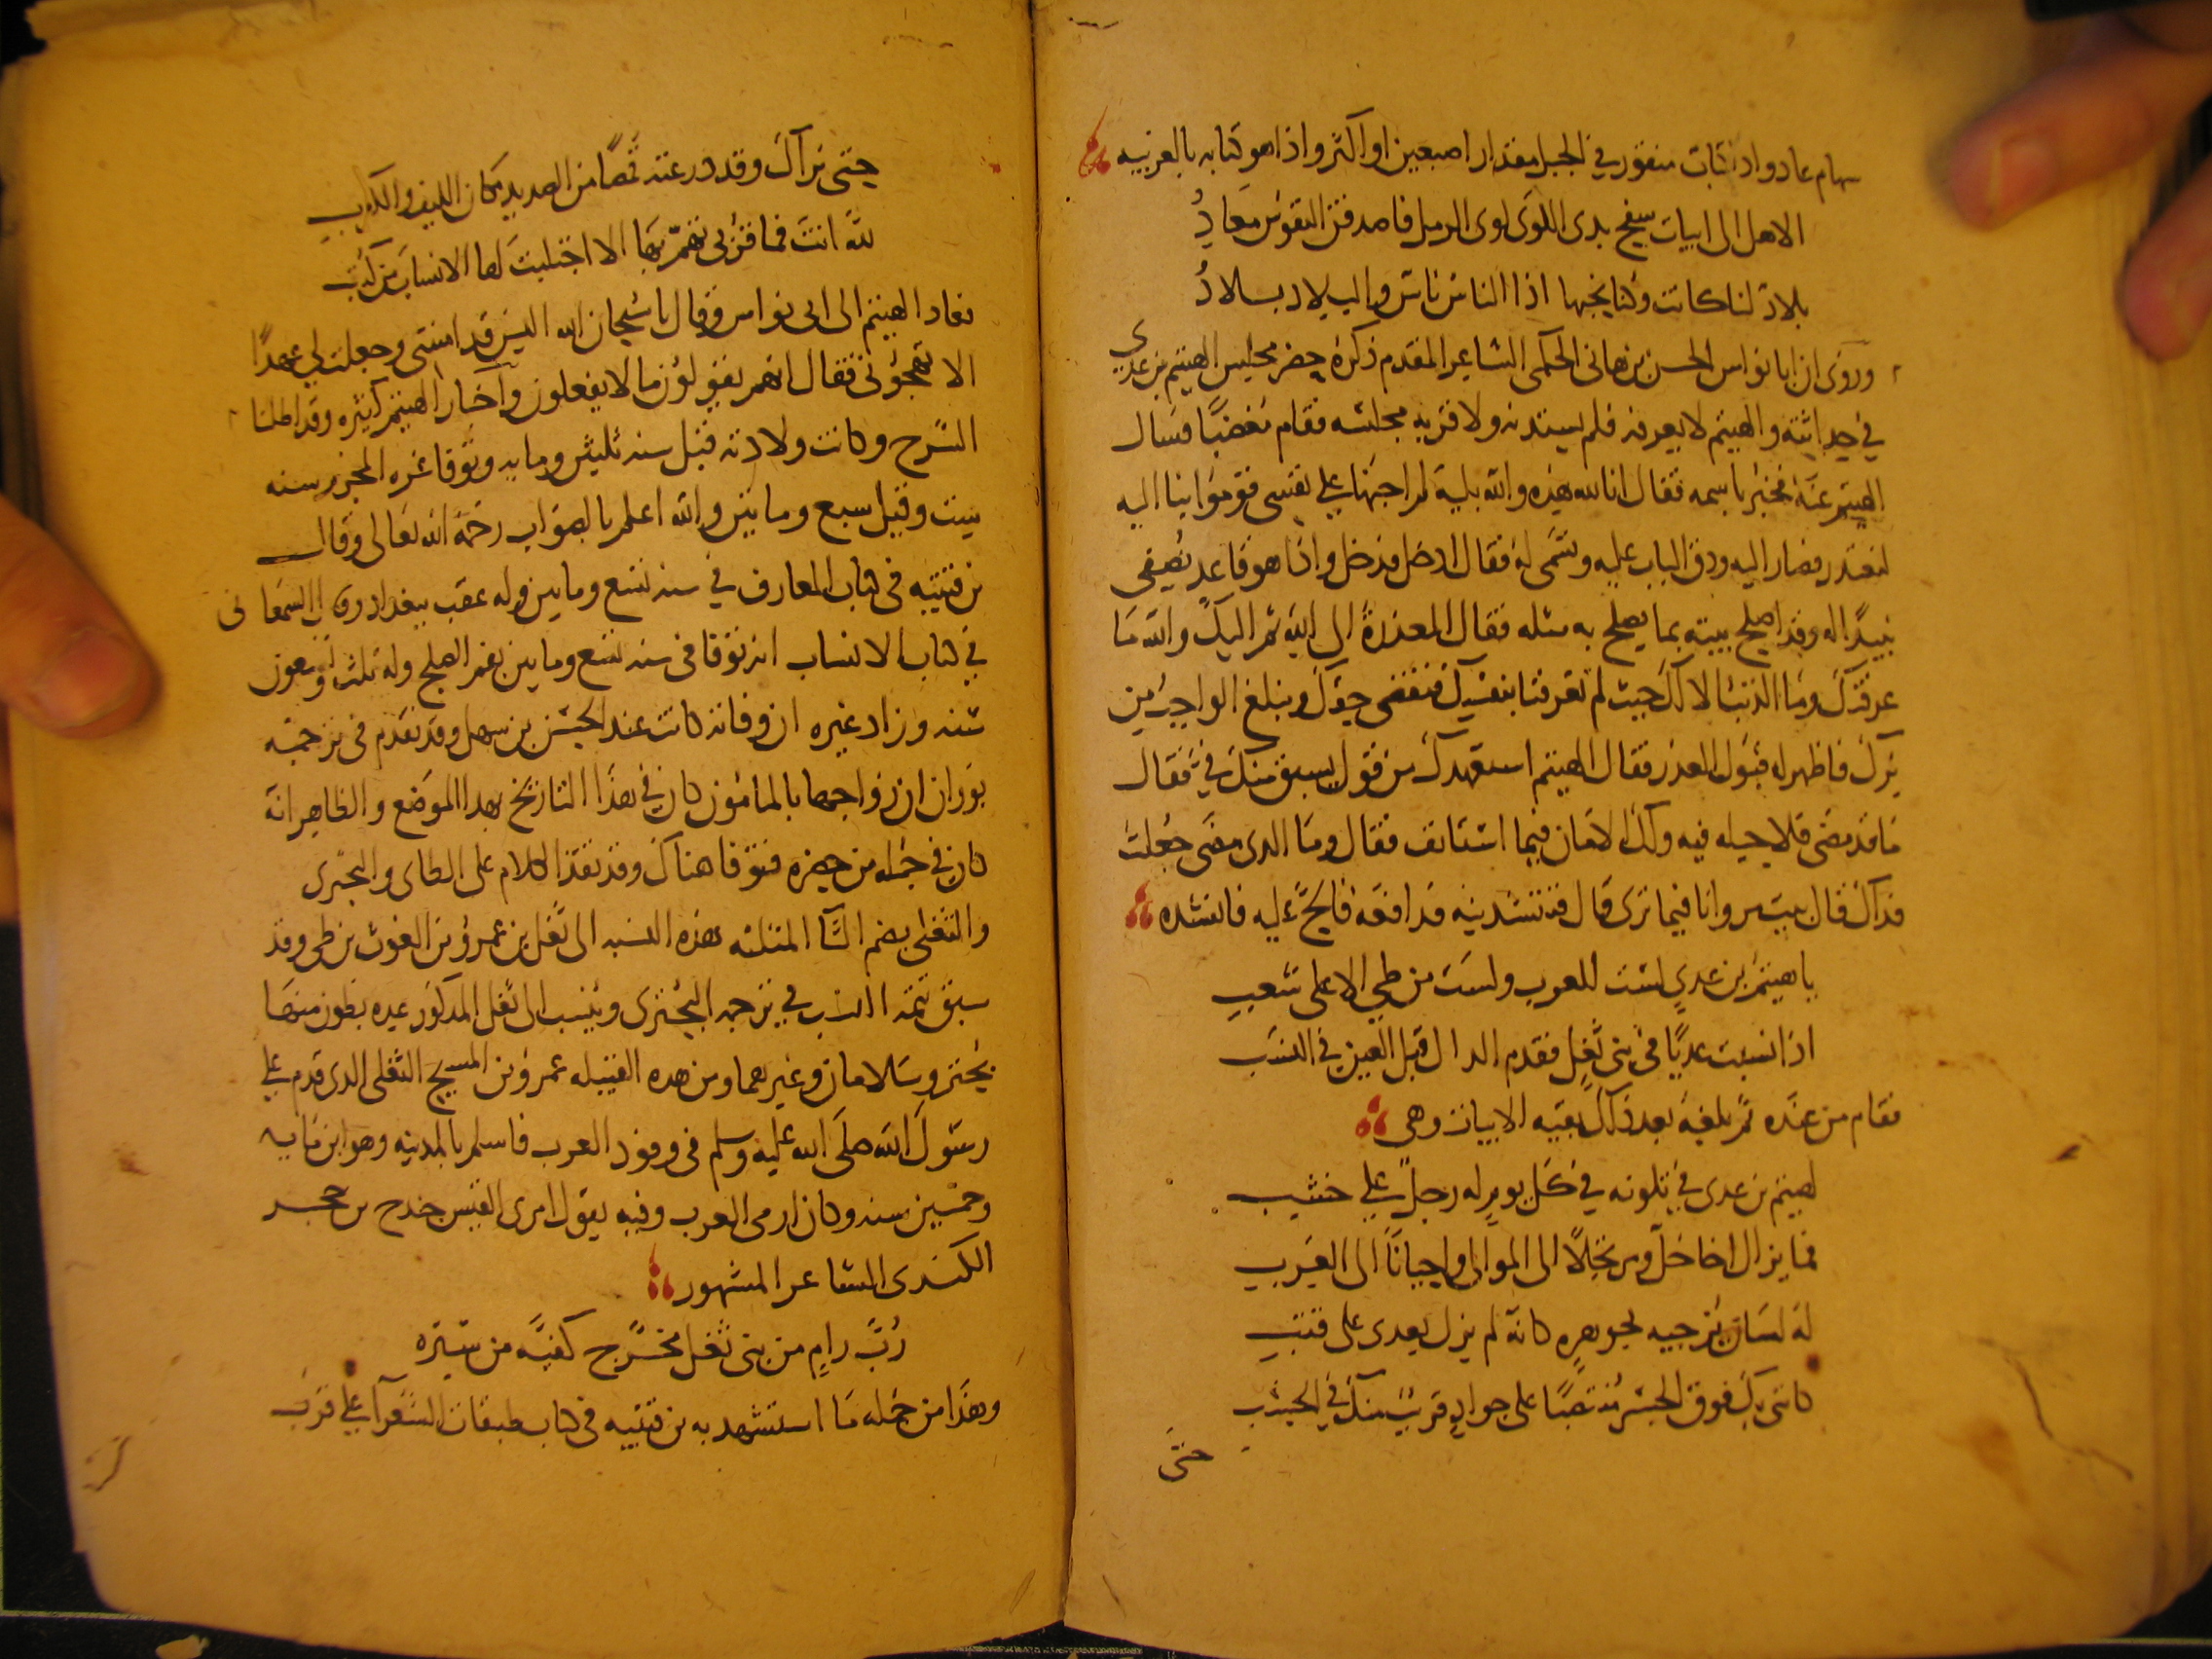 سهام عاد واذا كتاب منقور في الجبل مقدار اصبعين او اكثر واذا هو كتابه بالعربيه
الاهل الى ابيات سفح بذى اللوى لوى الرمل فاصدقن النفوس معادُ
بلاد لنا كانت وكنا نحبها اذا الناس ناس والبلاد بلادُ
وروى ان ابا نواس الحسن بن هانى الحكمى الشاعر المقدم ذكره حضر مجلس الهيثم بن عدى
في حداثته والهيثم لا يعرفه فلم يستدنه ولا قربه مجلسه فقام مغضبًا فسال
الهيثم عنه فخبر باسمه فقال انا لله هذه والله بلية لم اجنها على نفسى فقوموا بنا اليه
لنعتذر فصار اليه ودق الباب عليه وتسمى له فقال ادخل فدخل واذا هو قاعد يصفى
نبيذًا له وقد اصلح بيته بما يصلح به مثله فقال المعذرة الى الله ثم اليك والله ما
عرفتك وما الذنب الا لك حيث لم تعرفنا بنفسك فنقضى حقك ونبلغ الواجب من
برك فاظهر له قبول العذر فقال الهيثم استعهدك من قول يسبق منك فىّ فقال
ما قد مضى فلا حيله فيه ولك الامان فيما استانف فقال وما الذى مضى جعلت
فداك قال بيت مر وانا فيما ترى قال فتنشدنيه فدافعه فالح عليه فانشده
يا هيثم بن عدي لست للعرب ولست من طي الا على شغب
اذا نسبت عديًا في بنى ثعل فقدم الدال قبل العين في النسب
فقام من عنده ثم بلغه بعد ذلك بقيه الابيات وهى
لهيثم بن عدى في تلونه في كل يوم له رجل على خشب
فما يزال اخا حل ومرتحلًا الى الموالى واحيانًا الى العرب
له لسان يزجيه بجوهره كانه لم يزل يعدى على قتب
كاننى بك فوق الجسر منتصبًا على جواد قريب منك في الحسب
حتى
حتى نراك وقد درعته قمصًا من الصديد مكان الليف والكرب
لله انت فما قربى تهم بها الا اجتلبت لها الانساب من كثب
فعاد الهيثم الى ابى نواس وقال يا سبحان الله اليس قد امنتنى وجعلت لى عهدًا
الا تهجونى فقال انهم يقولون ما لا يفعلون واخبار الهيثم كثيره وقد اطلنا
الشرح وكانت ولادته قبل سنه ثلثين ومايه وتوفا غره المحرم سنه
ست وقيل سبع ومايتين والله اعلم بالصواب رحمه الله تعالى وقال
بن قتيبه فى كتاب المعارف في سنه تسع ومايتين وله عقب ببغداد وقال السمعانى
في كتاب الانساب انه توفا فى سنه تسع ومايتين بفم الصلح وله ثلث وتسعون
سنه وزاد غيره ان وفاته كانت عند الحسن بن سهل وقد تقدم فى ترجمه
بوران ان زواجها بالمامون كان في هذا التاريخ بهذا الموضع والظاهر انه
كان في جمله من حضره فتوفا هناك وقد تقدم الكلام على الطاى والبحترى
والثعلى بضم الثآ المثلثه هذه النسبه الى ثعل بن عمرو بن الغوث بن طى وقد
سبق تتمه النسب في ترجمه البحترى وينسب الى ثعل المذكور عده بطون منها
بحتر وسلامان وغيرهما ومن هذه القبيله عمرو بن المسبح الثعلى الذى قدم على
رسول الله صلى الله عليه وسلم فى وفود العرب فاسلم بالمدينه وهو ابن مايه
وخمسين سنه وكان ارمى العرب وفيه يقول امرى القيس حندج بن حجر
الكندى الشاعر المشهور
رُبّ رامٍ من بنى ثعل مخرج كفيه من ستره
وهذا من جمله ما استشهد به بن قتيبه فى كتاب طبقات الشعرآ على قرب